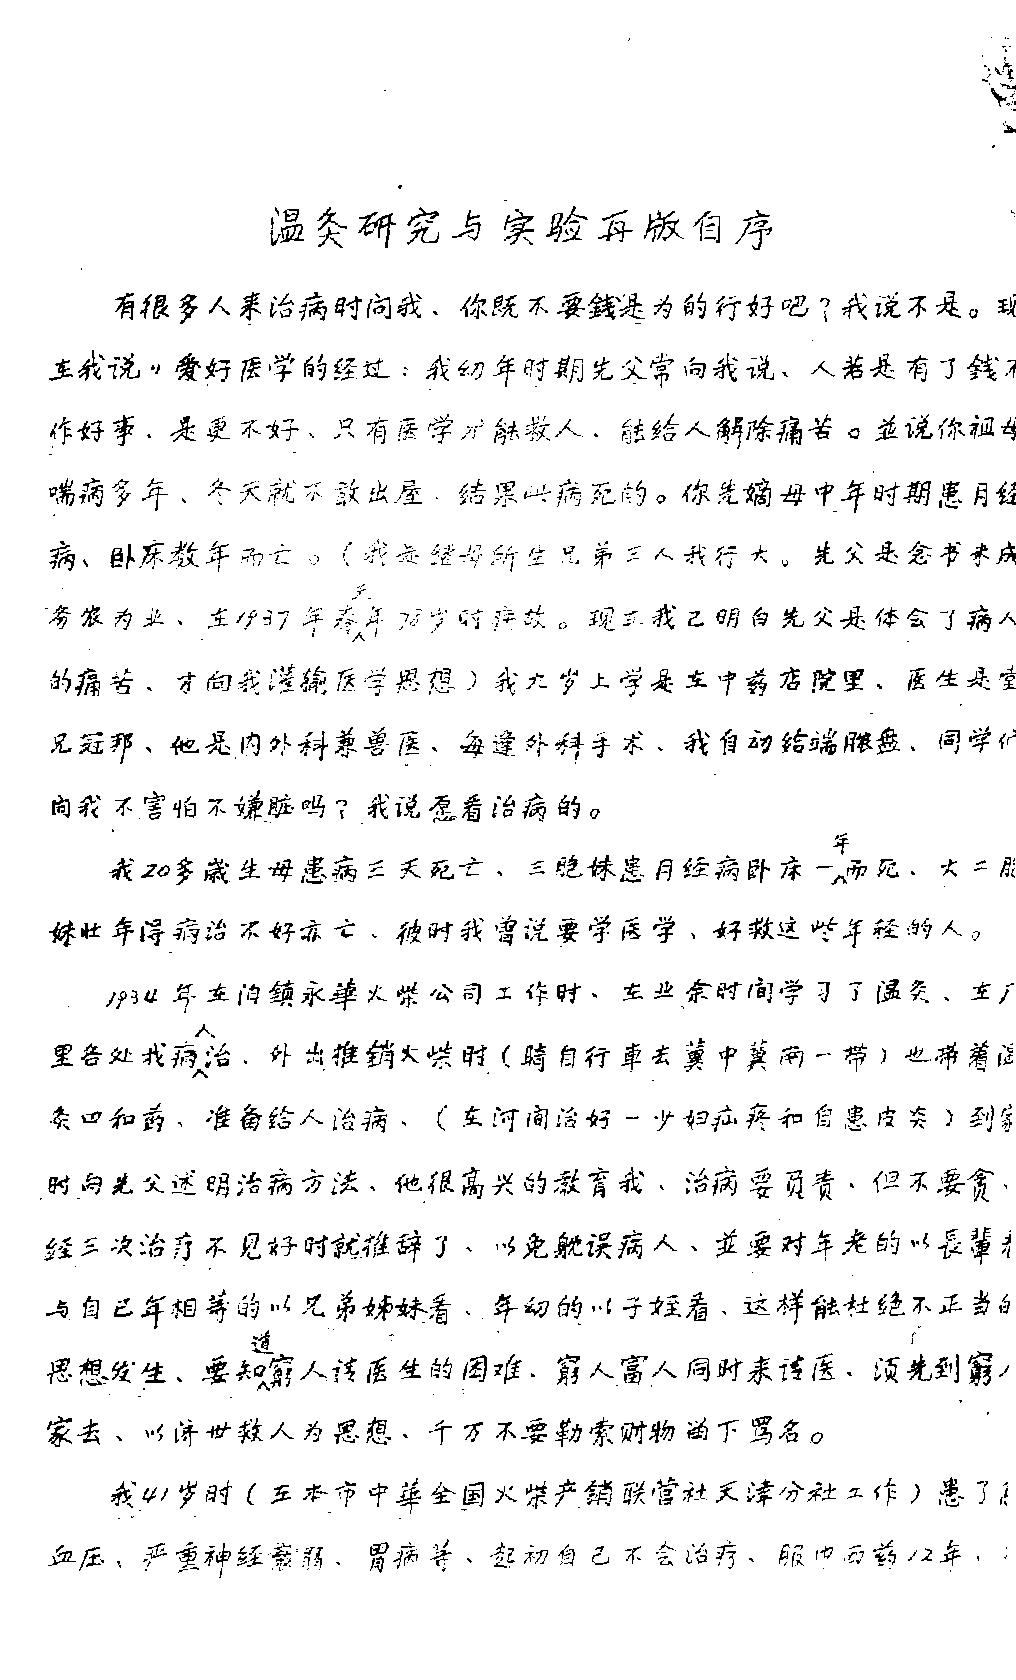 温灸研究与实验再版自序
有很多人来治病时问我、你既不要錢是为的行好吧？我说不是。现
在我说〃爱好医学的经过：我幼年时期先父常向我说、人若是有了錢不
作好事、是更不好、只有医学才能救人、能给人解除痛苦。並说你祖母
喘病多年、冬天就不敢出屋、结果此病死的。你先嫡母中年时期患月经
病、卧床数年而亡。（我是继母所生兄弟三人我行大。先父是念书未成
务农为业、在1937年春年78岁时病故。现在我己明白先父是体会了病人
的痛苦、才向我灌输医学思想）我九岁上学是在中药店院里、医生是堂
兄冠邦、他是内外科兼兽医、每逢外科手术、我自动给端脓盘、同学们
问我不害怕不嫌脏吗？我说愿看治病的。
我20多歲生母患病三天死亡、三胞妹患月经病卧床一年而死、大二胞
妹壮年得病治不好亦亡、彼时我曾说要学医学、好救这些年轻的人。
1934年在泊鎮永華火柴公司工作时、在业余时间学习了温灸、在厂
里各处找病人治、外出推銷火柴时（騎自行車去冀中冀南一带）也带着温
灸四和药、准备给人治病、（在河间治好一少妇疝疼和自患皮炎）到家
时向先父述明治病方法、他很高兴的教育我、治病要负责、但不要贪、
经三次治疗不见好时就推辞了、以免躭误病人、並要对年老的以長輩看
与自己年相等的以兄弟姊妹看、年幼的以子姪看、这样能杜绝不正当的
思想发生、要知道窮人请医生的困难、窮人富人同时来请医、须先到窮人
家去、以济世救人为思想、千万不要勒索财物留下骂名。
我41岁时（在本市中華全国火柴产銷联营社天津分社工作）患了高
血压、严重神经衰弱、胃病等、起初自己不会治疗、服中西药12年、